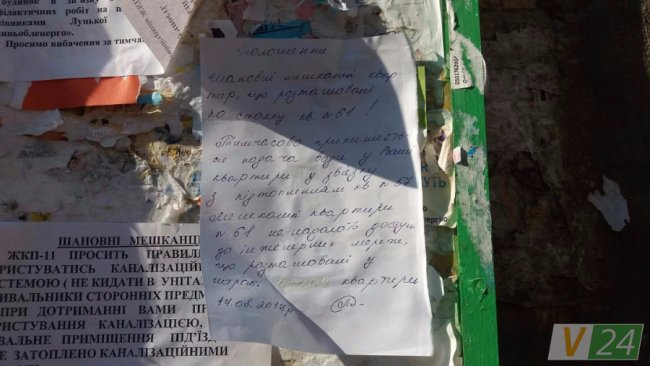 будинок в зв'язку
філактичних робіт на
івниками Луцької
иньобленерго».
Просимо вибачення за тимча
Оголошення
Шановні мешканці квар-
тир, що розташовані
по стояку кв. №61!
Тимчасово припиняєть-
ся подача води у Ваши
квартири у звязку
з підтопленням кв. №57
Мешканці квартири
№61 не надають доступ
до інженерних мереж,
що розташовані у
квартири
17.05.2017р
ШАНОВНІ МЕШКАНЦ
ЖКП-11 ПРОСИТЬ ПРАВИЛ
РИСТУВАТИСЬ КАНАЛІЗАЦІЙ
СТЕМОЮ ( НЕ КИДАТИ В УНІТА
ИВАЛЬНИКИ СТОРОННІХ ПРЕДМ
ПРИ ДОТРИМАННІ ВАМИ П
РИСТУВАННЯ КАНАЛІЗАЦІЄЮ,
ВАЛЬНЕ ПРИМІЩЕННЯ ПІД'ЇЗД
Е ЗАТОПЛЕНО КАНАЛІЗАЦІЙНИМИ
V 24